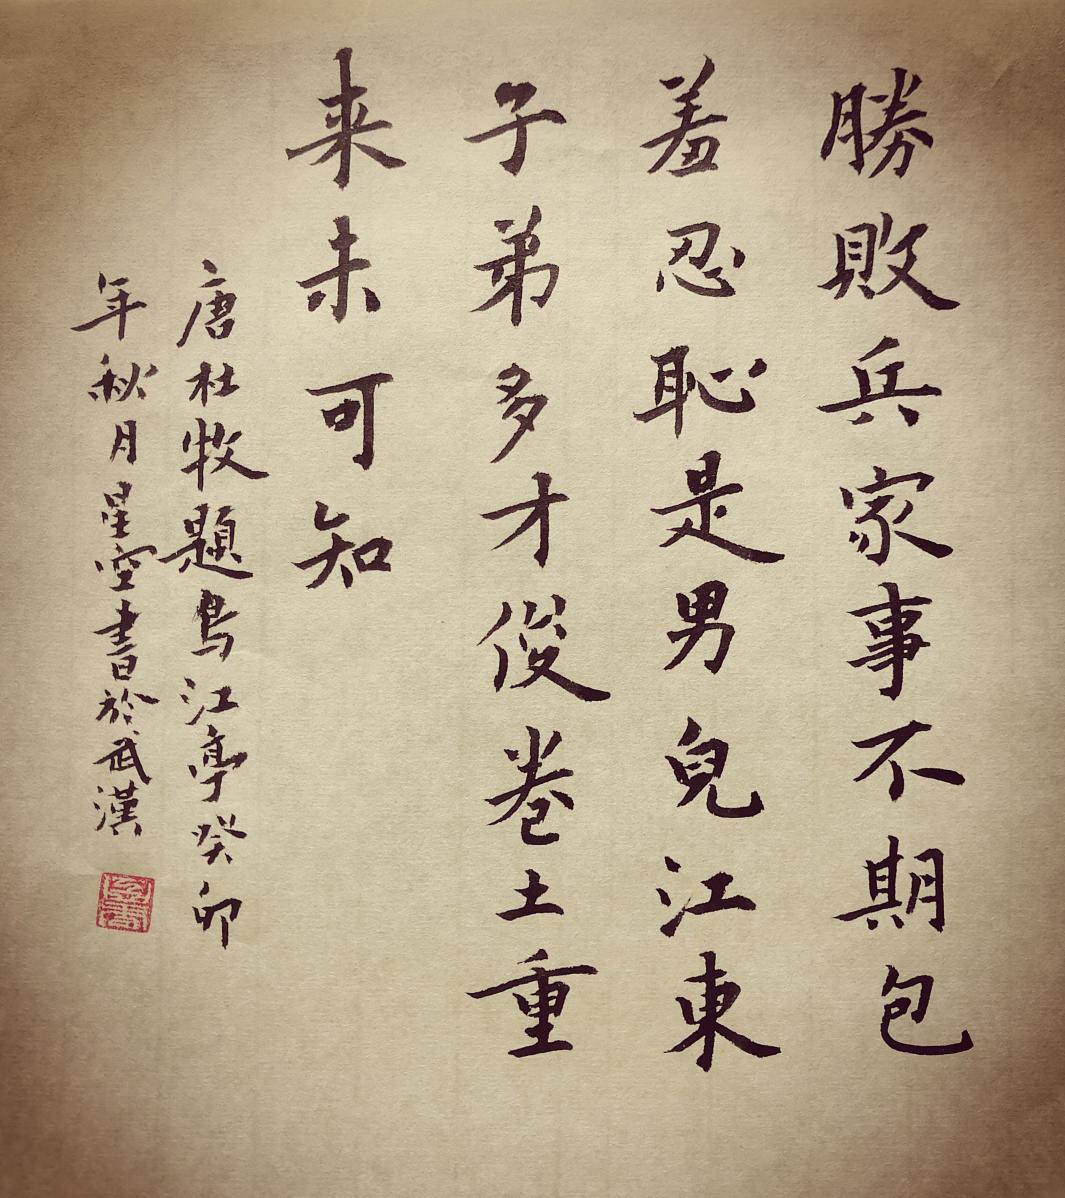 勝敗兵家事不期包
羞忍恥是男兒江東
子弟多才俊卷土重
来未可知
唐杜牧題烏江亭癸卯
年秋月星空書於武漢